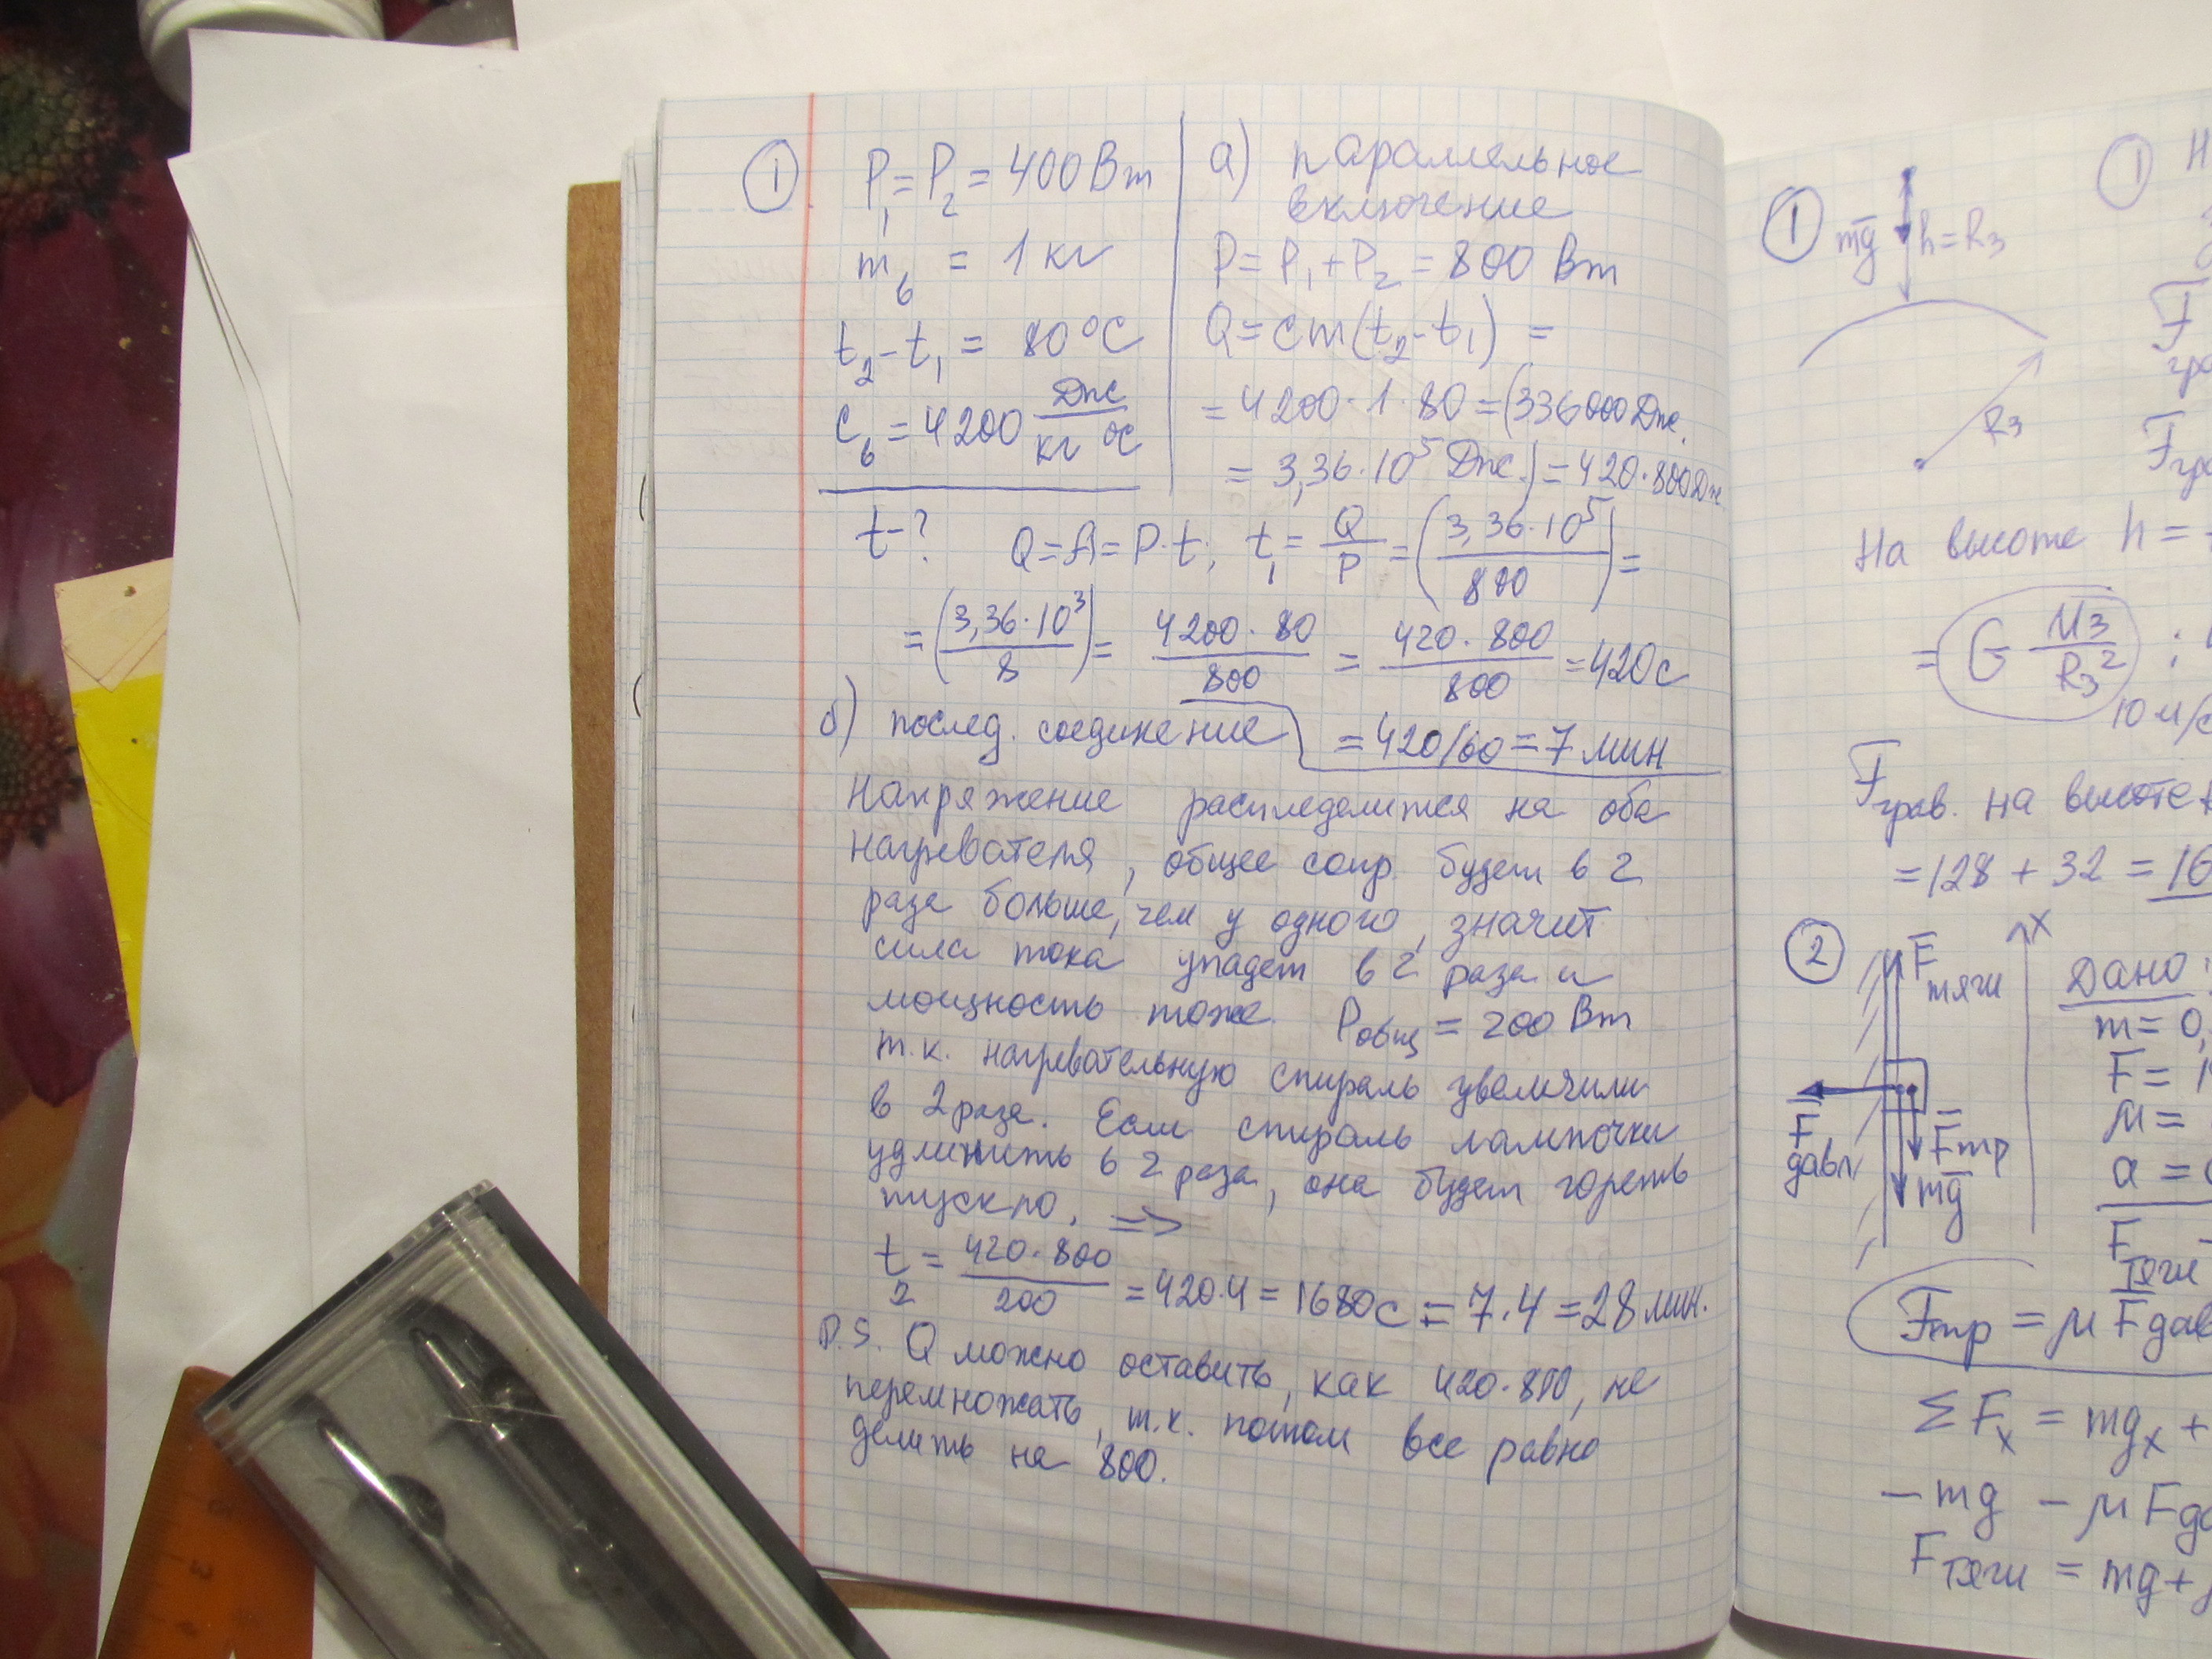 ① P₁ = P₂ = 400 Вт
m_в = 1 кг
t₂ - t₁ = 80°C
c_в = 4200 Дж / кг °C
t - ?
а) параллельное
включение
P = P₁ + P₂ = 800 Вт
Q = cm(t₂ - t₁) =
= 4200 · 1 · 80 = (336000 Дж.
= 3,36 · 10⁵ Дж.) = 420 · 800 Дж
Q = A = P · t; t₁ = Q / P = (3,36 · 10⁵ / 800) =
= (3,36 · 10³ / 8) = 4200 · 80 / 800 = 420 · 800 / 800 = 420 с
= 420/60 = 7 мин
б) послед. соединение
Напряжение распределится на оба
нагревателя, общее сопр. будет в 2
раза больше, чем у одного, значит
сила тока упадет в 2 раза и
мощность тоже. Pобщ = 200 Вт
т.к. нагревательную спираль увеличили
в 2 раза. Если спираль лампочки
удлинить в 2 раза, она будет гореть
тускло. =>
t₂ = 420 · 800 / 200 = 420 · 4 = 1680 с = 7 · 4 = 28 мин.
P.S. Q можно оставить, как 420 · 800, не
перемножать, т.к. потом все равно
делить на 800.
① mg h = Rз
Rз
① Н
F
гра
Fгра
На высоте h =
= G Mз / Rз² ;
10 м/с
Fграв. на высоте
= 128 + 32 = 16
② Fтяги X
Fдавл
Fтр
mg
Дано:
m = 0,
F = 1
μ =
a =
Fтяги -
Fтр = μ Fдав
ΣFx = mgx +
- mg - μ Fда
Fтяги = mg +